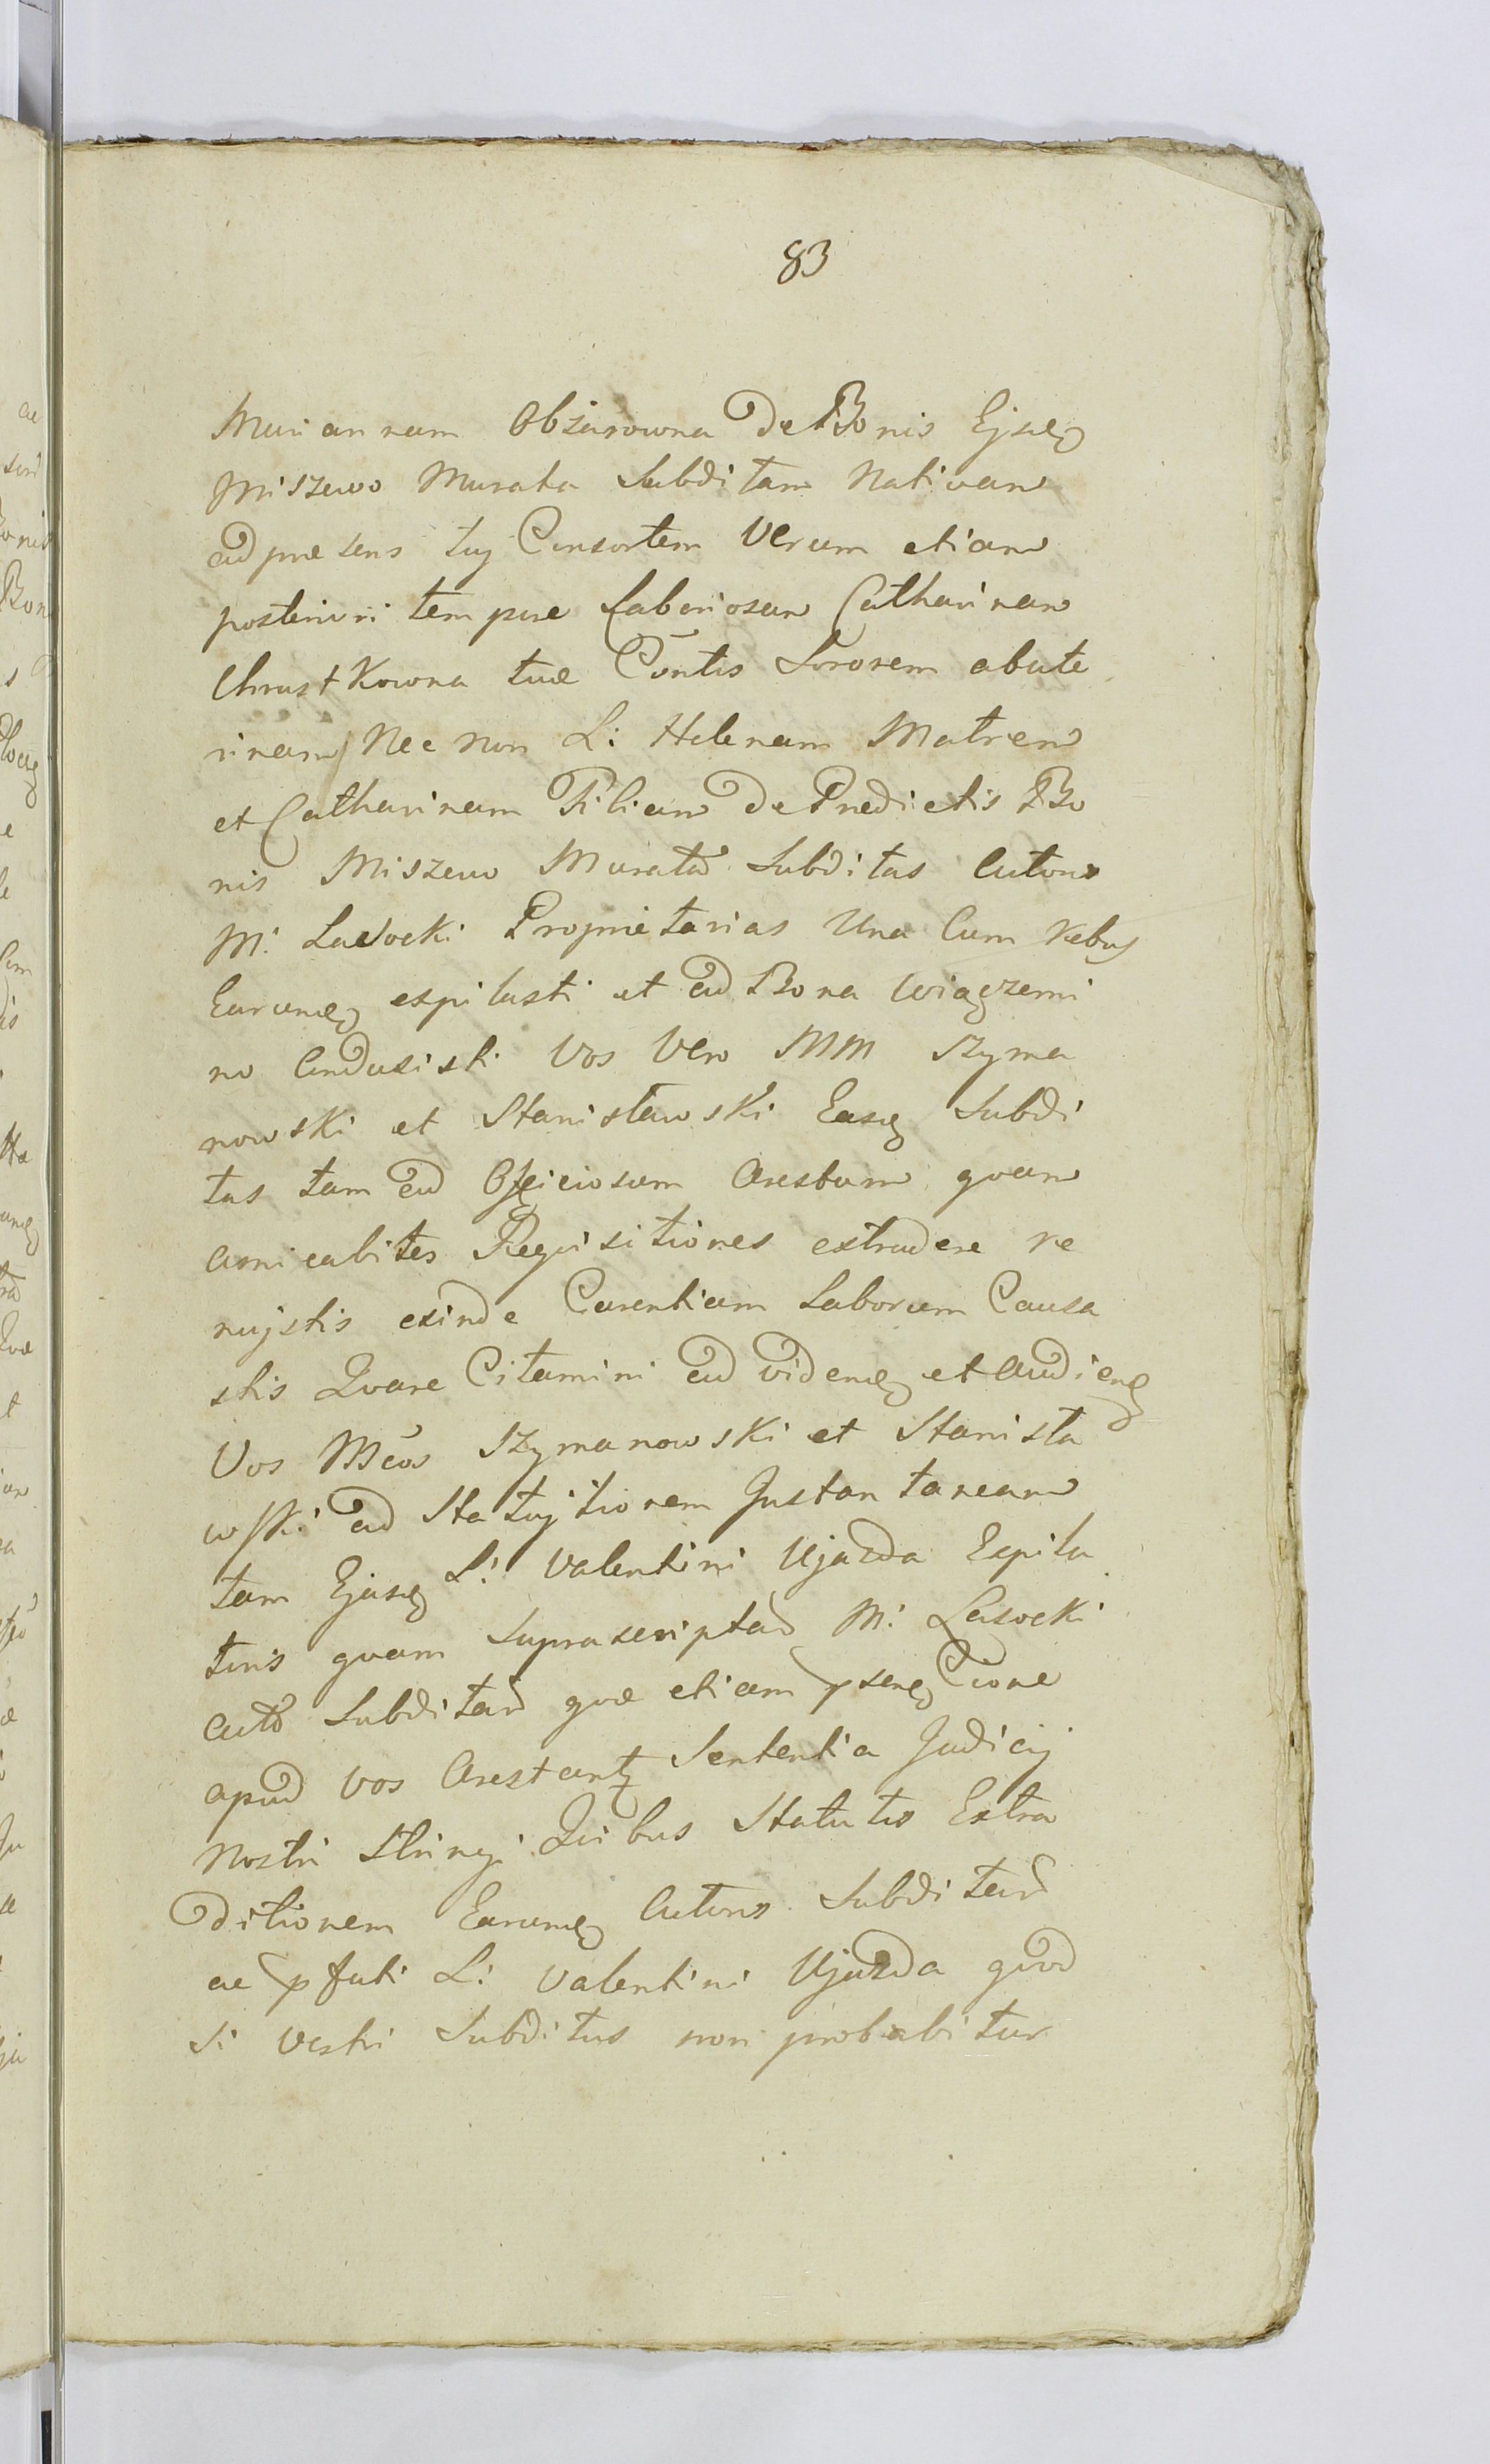 83
Mariannam Obżarowna de Bonis Ejusdę
Miszewo Murata Subditam Nativam
ad praesens tuj Consortem Verum etiam
posteriori tempore Laboriosam Catharinam
Chrustkowna tuae Contis Sororem abute
rinam Nec non L: Helenam Matrem
et Catharinam Filiam de Predictis Bo
nis Miszewo Murata Subditas Actoris
M: Lasocki Proprietarias Una Cum rebus
Earumdę expilasti et ad Bona Wiączemi
no Conduxisti Vos Vero MM Szyma
nowski et Stanisławski Easdę Subdi
tas tam ad Officiosum Arestum quam
amicabiles Reqvisitiones extradere re
nujstis exinde Carentiam Laborum Causa
stis Qvare Citamini ad videndę et Audiendę
Vos MMcos Szymanowski et Stanisła
wski ad Statujtionem Instantaneam
tam Ejusdę L: Valentini Ujazda Expila
toris qvam Suprascriptar M: Lasocki
acto Subditar qvae etiam
apud vos Arestantz Sententia Judicij
Nostri Stringi Qvibus Statutis Extra
ditionem Earumdę Actoris Subditar
ac pfati L: Valentini Ujazda qvod
Si Vestri Subditus non probabitur